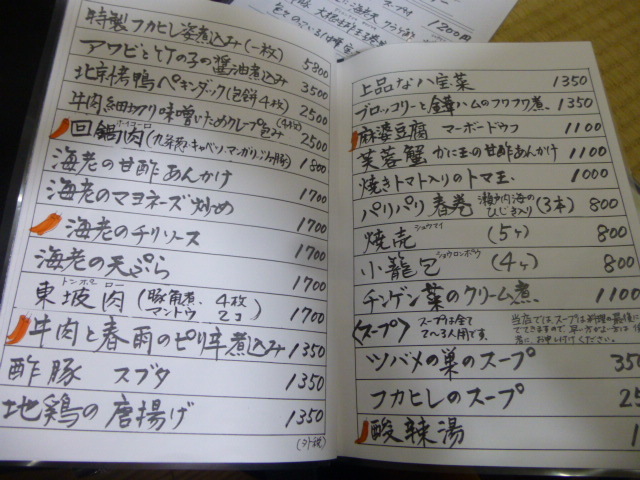 スープ
1200円
特製フカヒレ姿煮込み(一枚) 5800
アワビと竹の子の醤油煮込み 3500
北京烤鴨ペキンダック(包餅4枚) 2500
牛肉細切り味噌いためクレープ包み(4枚) 2500
回鍋肉 ホイコーロ 1800
海老の甘酢あんかけ 1700
海老のマヨネーズ炒め 1700
海老のチリソース 1700
海老の天ぷら 1700
東坡肉 トンポーロー (豚角煮、4枚 マントウ 2コ) 1700
牛肉と春雨のピリ辛煮込み 1350
酢豚 スブタ 1350
地鶏の唐揚げ 1350
(外税)
上品な八宝菜 1350
ブロッコリーと金華ハムのフワフワ煮、1350
麻婆豆腐 マーボードウフ 1100
芙蓉蟹 かに玉の甘酢あんかけ 1100
焼きトマト入りのトマ玉、 1000
パリパリ春巻 瀬戸内海のひじき入り (3本) 800
焼売 シュウマイ (5ヶ) 800
小籠包 ショウロンポウ (4ヶ) 800
チンゲン菜のクリーム煮 1100
〈スープ〉 スープは全て2〜3人用です。
ツバメの巣のスープ 350
フカヒレのスープ 25
酸辣湯 1